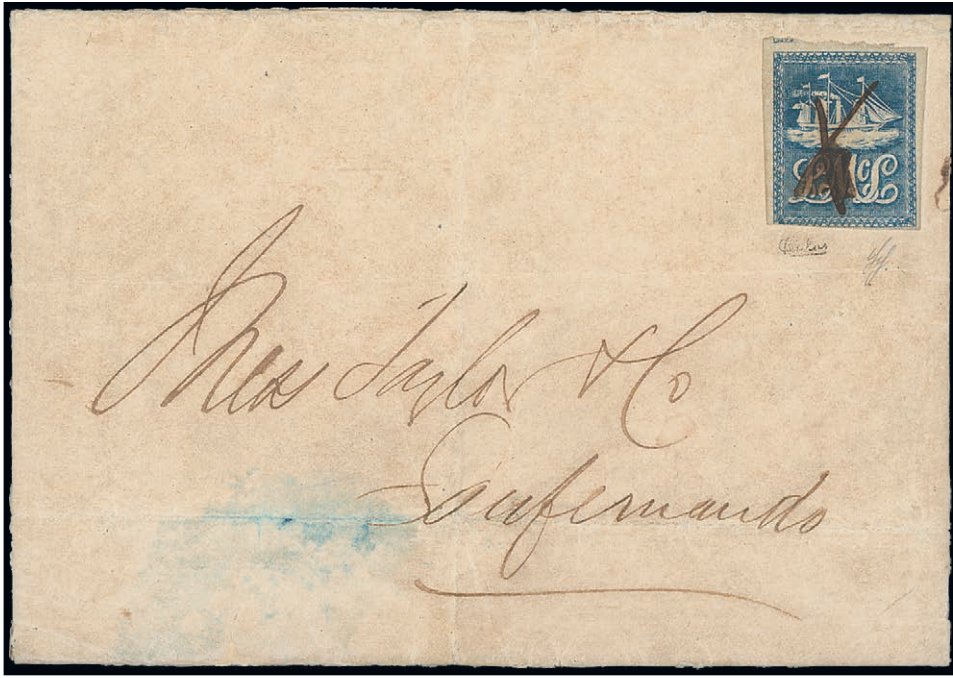 LMcL
Alex Taylor & Co
Sanfernando